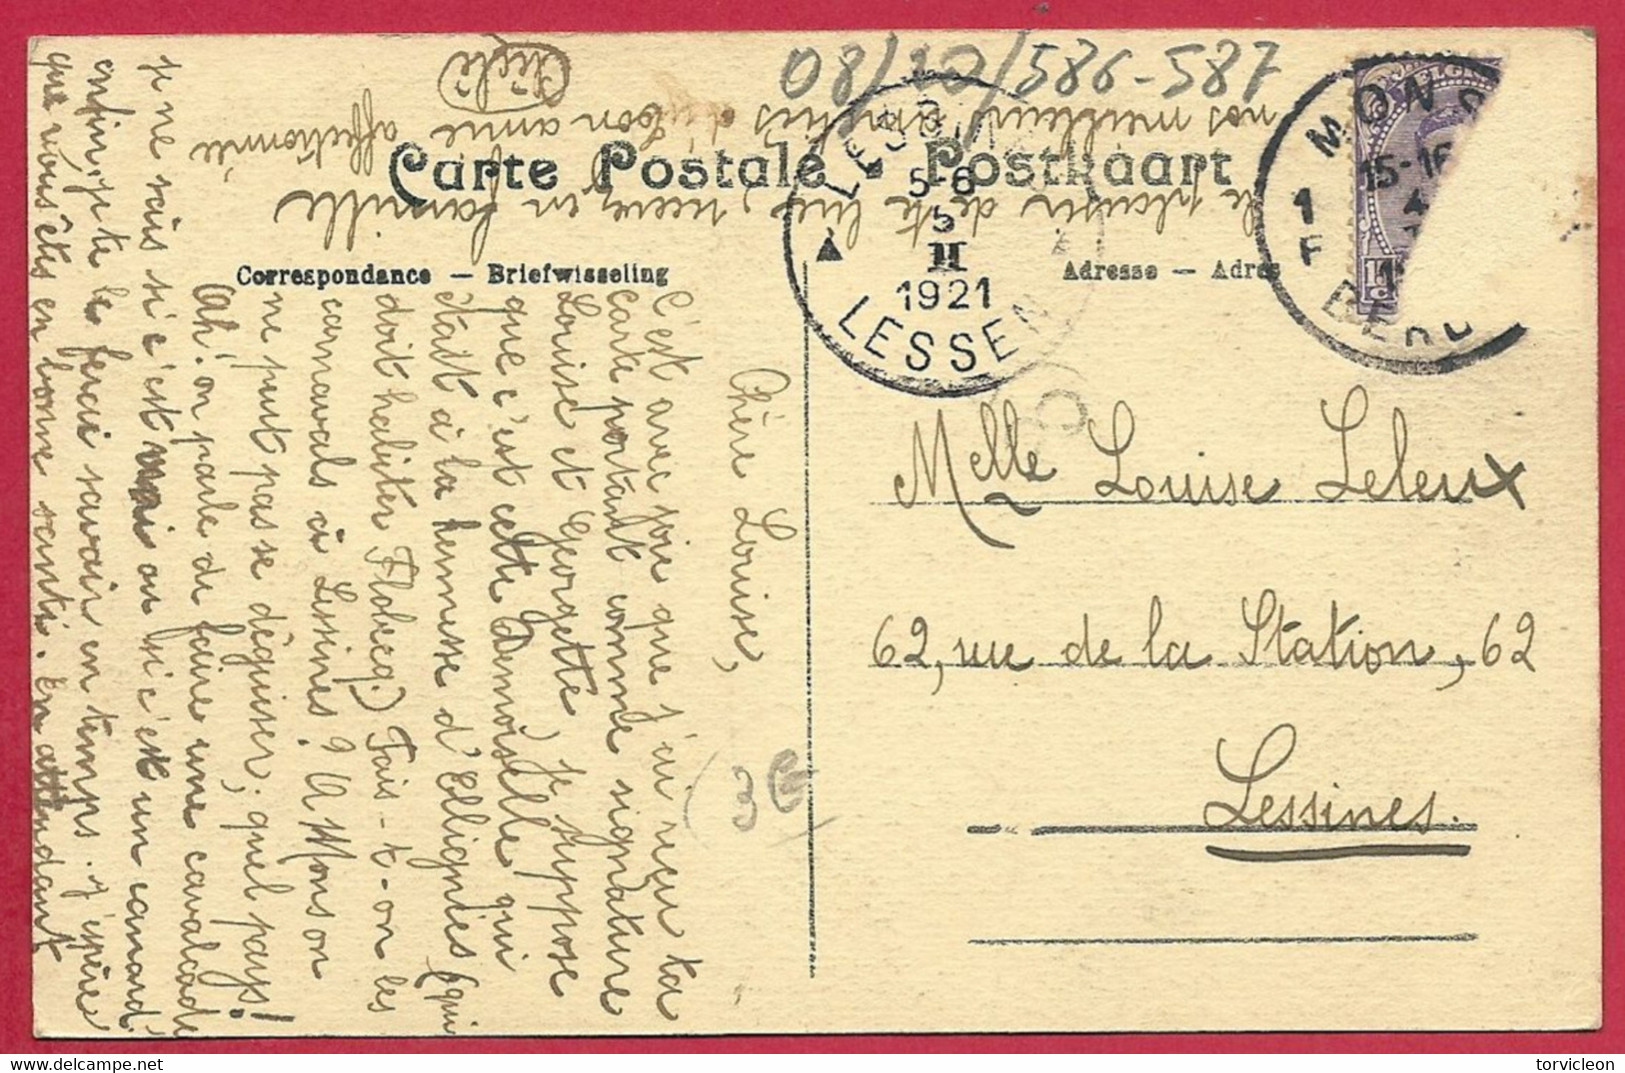 08/10/586-587
Carte Postale - Postkaart
Correspondance — Briefwisseling
Adresse — Adres
LESSINES
5-6
5
II
1921
LESSEN
MONS
15-16
1
BERGEN
BELGIQUE
Melle Louise Leleux
62, rue de la Station, 62
Lessines.
Chère Louise,
C'est avec joie que j'ai reçu ta
carte portant comme signature
Louise et Georgette, je suppose
que c'est cette Demoiselle qui
était à la kermesse d'Ellignies (qui
doit habiter Flobecq.) Fais-t-on les
carnavals à Lessines? A Mons on
ne peut pas se déguiser; quel pays!
Ah! on parle de faire une cavalcade
je ne sais si c'est vrai ou si c'est un canard
enfin, je te le ferai savoir en temps. J'espère
que vous êtes en bonne santé. En attendant
le plaisir de te lire, reçois en famille
nos meilleurs amitiés. Ton amie affectionnée
3E
torvicleon